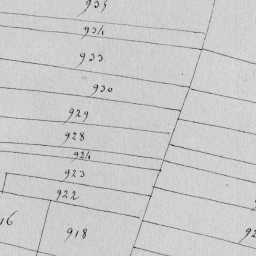 935
934
933
930
929
928
924
923
922
916
918